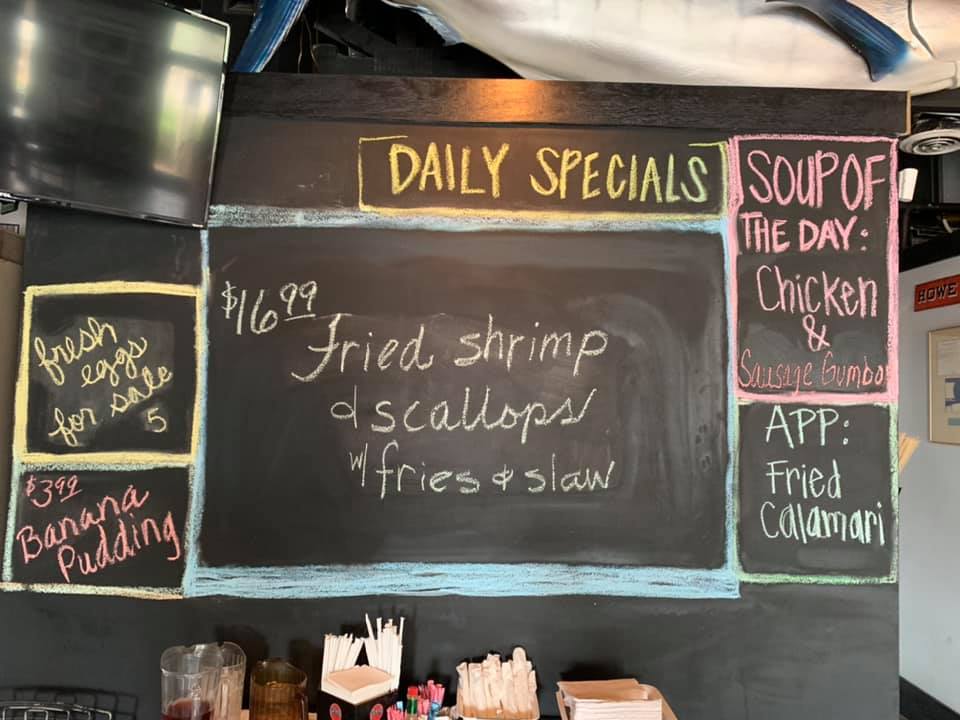 DAILY SPECIALS
$16.99
Fried shrimp
& scallops
w/ fries & slaw
SOUP OF
THE DAY:
Chicken
&
Sausage Gumbo
APP:
Fried
Calamari
fresh
eggs
for sale
5
$3.99
Banana
Pudding
HOWE